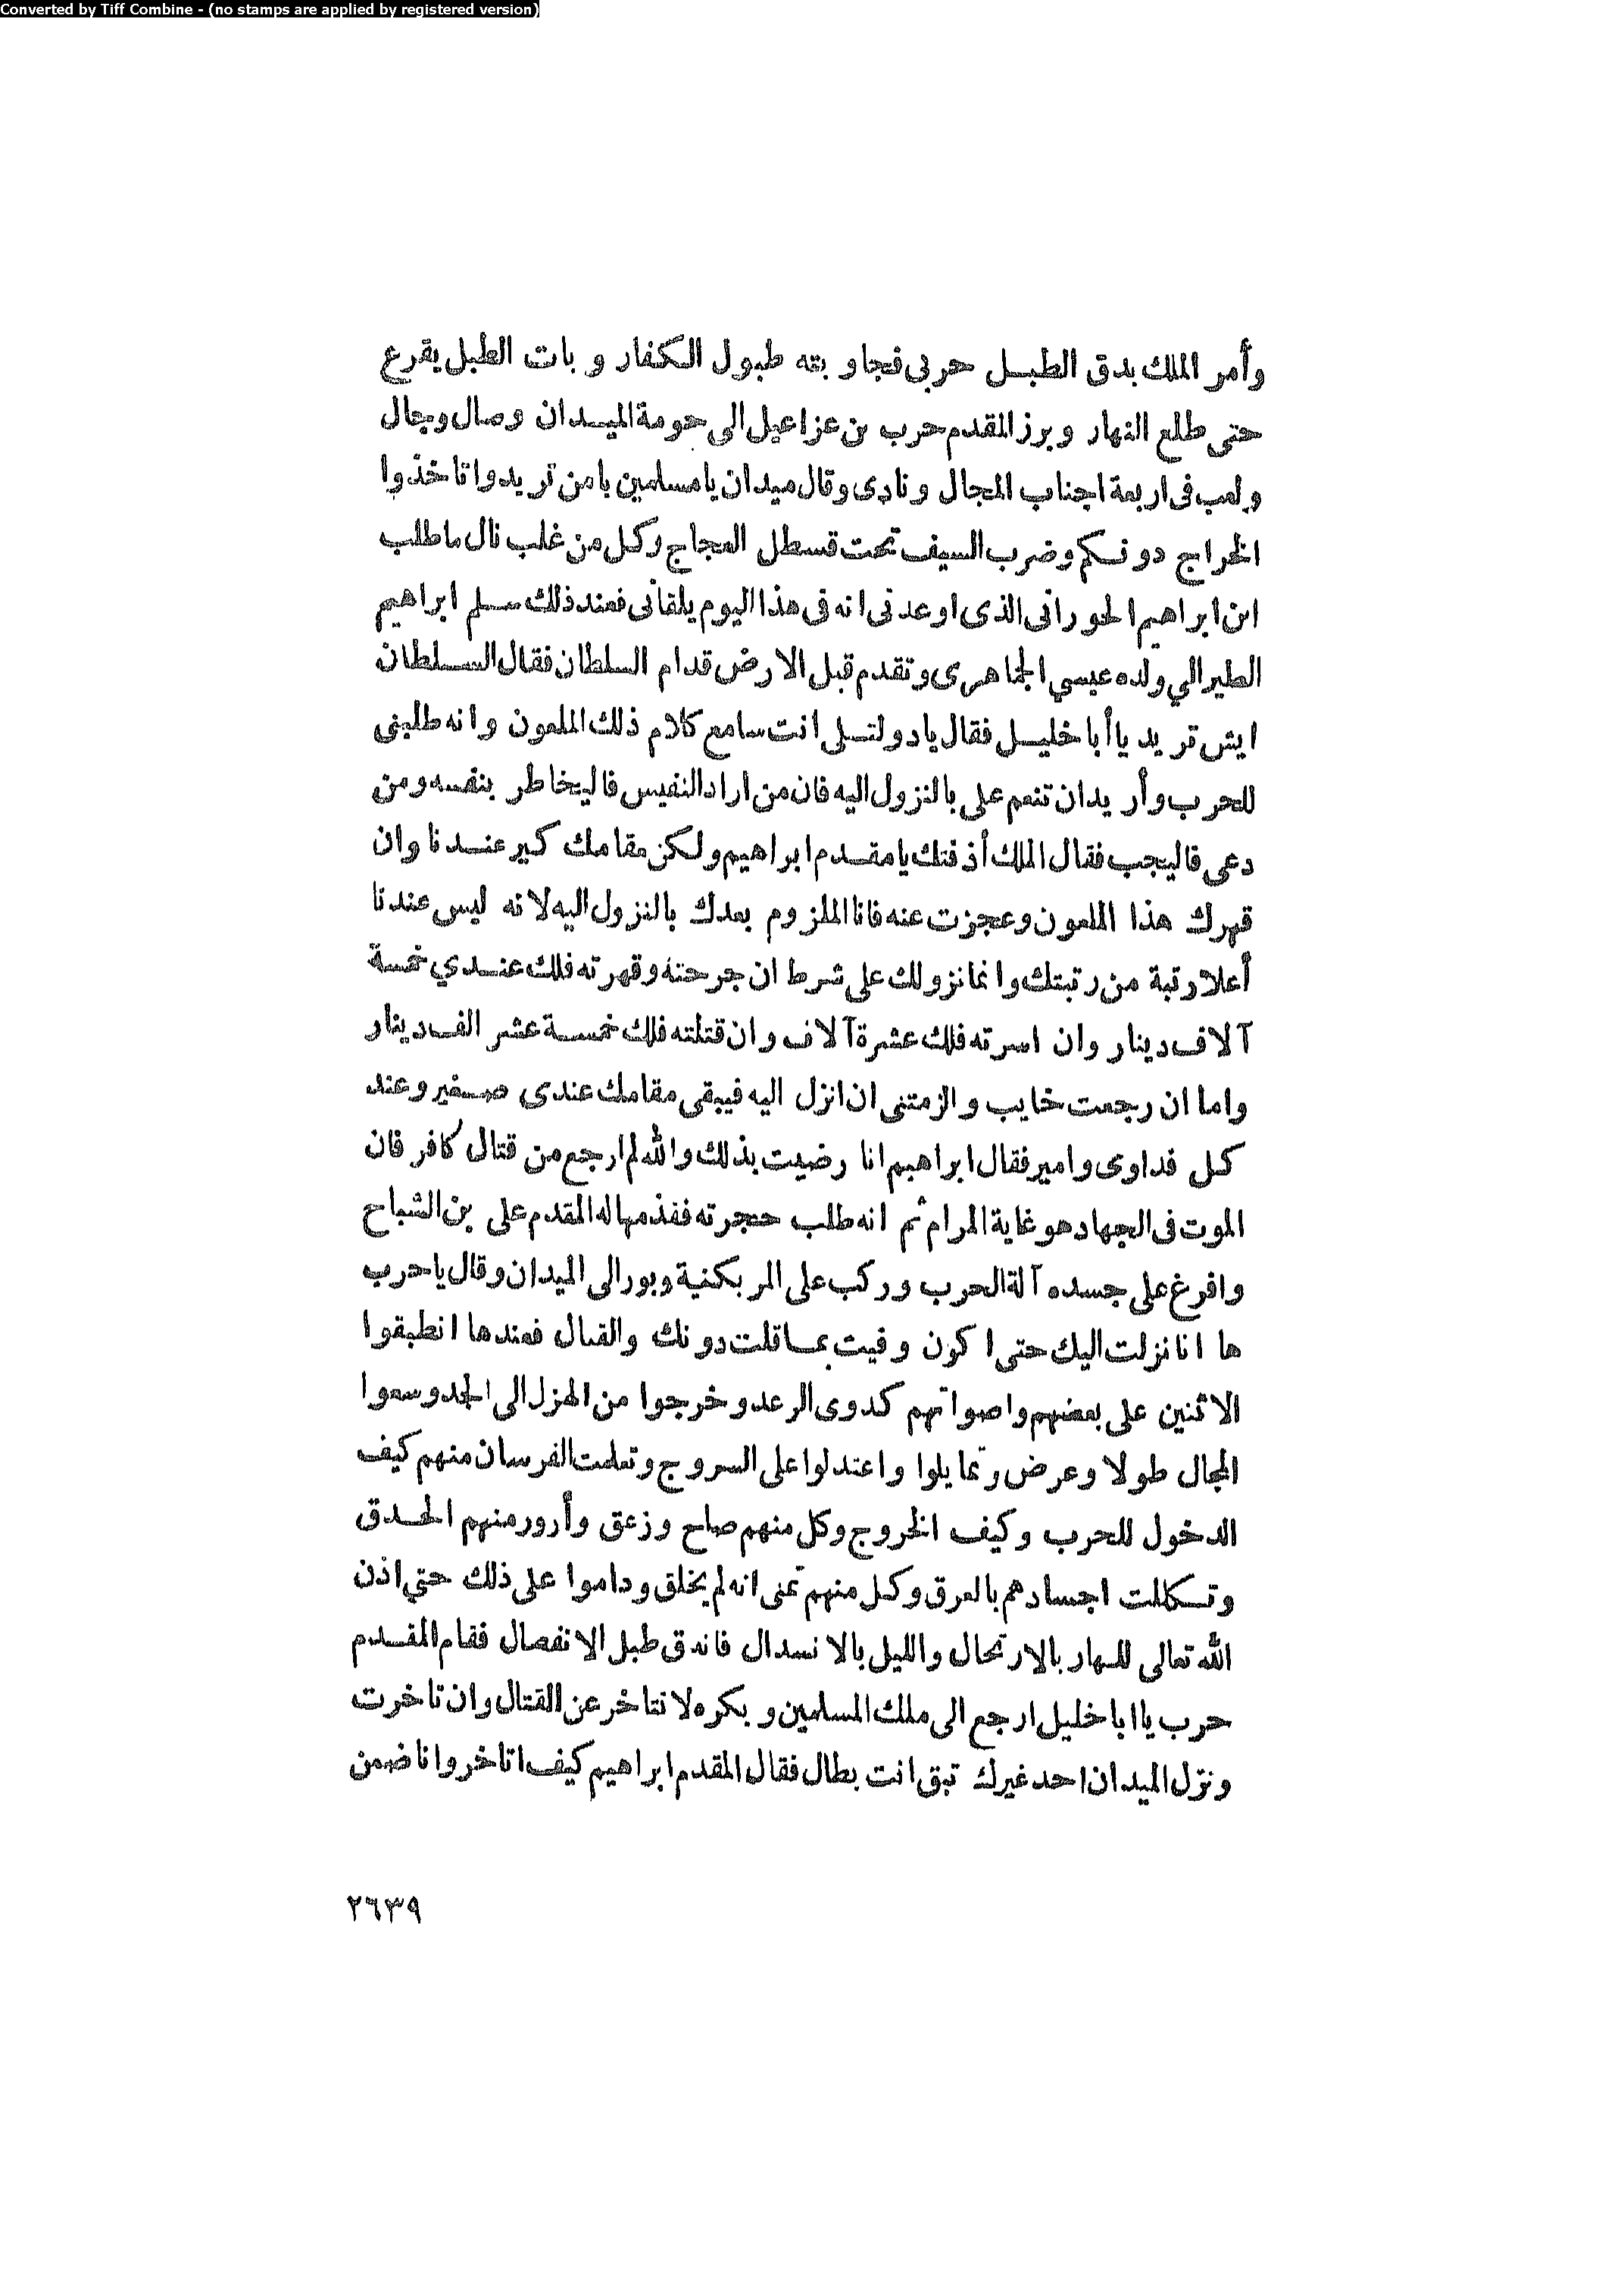 Converted by Tiff Combine - (no stamps are applied by registered version)
وأمر الملك بدق الطبل حربى فجاوبته طبول الكفار وبات الطبل يقرع
حتى طلع النهار وبرز المقدم حرب بن عزاعيل الى حومة الميدان وصال وجال
ولعب فى اربعة اجناب المجال ونادى وقال ميدان يا مسلمين يا من تريدوا تاخذوا
الخراج دونكم وضرب السيف تحت قسطل العجاج وكل من غلب نال ما طلب
اين ابراهيم الحورانى الذى اوعدنى انه فى هذا اليوم يلقانى فعند ذلك سلم ابراهيم
الطير الي ولده عيسي الجماهرى وتقدم قبل الارض قدام السلطان فقال السلطان
ايش تريد يا أبا خليل فقال يا دولتلى انت سامع كلام ذلك الملعون وانه طلبنى
للحرب وأريد ان تنعم على بالنزول اليه فان من اراد النفيس فاليخاطر بنفسه ومن
دعى فاليجب فقال الملك أذنتك يا مقدم ابراهيم ولكن مقامك كبير عندنا وان
قهرك هذا الملعون وعجزت عنه فانا الملزوم بعدك بالنزول اليه لانه ليس عندنا
أعلا رتبة من رتبتك وانما نزولك على شرط ان جرحته وقهرته فلك عندي خمسة
آلاف دينار وان اسرته فلك عشرة آلاف وان قتلته فلك خمسة عشر الف دينار
واما ان رجعت خايب والزمتنى ان انزل اليه فيبقى مقامك عندى صغير وعند
كل فداوى وامير فقال ابراهيم انا رضيت بذلك والله لم ارجع من قتال كافر فان
الموت فى الجهاد هو غاية المرام ثم انه طلب حجرته فقدمها له المقدم على بن الشباح
وافرغ على جسده آلة الحرب وركب على المربكنية وبور الى الميدان وقال يا حرب
ها انا نزلت اليك حتى اكون وفيت بما قلت دونك والقتال فعندها انطبقوا
الاثنين على بعضهم واصواتهم كدوى الرعد وخرجوا من الهزل الى الجد وسعوا
المجال طولا وعرض وتمايلوا واعتدلوا على السروج وتعلمت الفرسان منهم كيف
الدخول للحرب وكيف الخروج وكل منهم صاح وزعق وأرور منهم الحدق
وتكللت اجسادهم بالعرق وكل منهم تمنى انه لم يخلق وداموا على ذلك حتي اذن
الله تعالى للنهار بالارتحال والليل بالانسدال فاندق طبل الانفصال فقام المقدم
حرب يا ابا خليل ارجع الى ملك المسلمين وبكره لا تتاخر عن القتال وان تاخرت
ونزل الميدان احد غيرك تبق انت بطال فقال المقدم ابراهيم كيف اتاخر وانا ضمن
٢٦٣٩